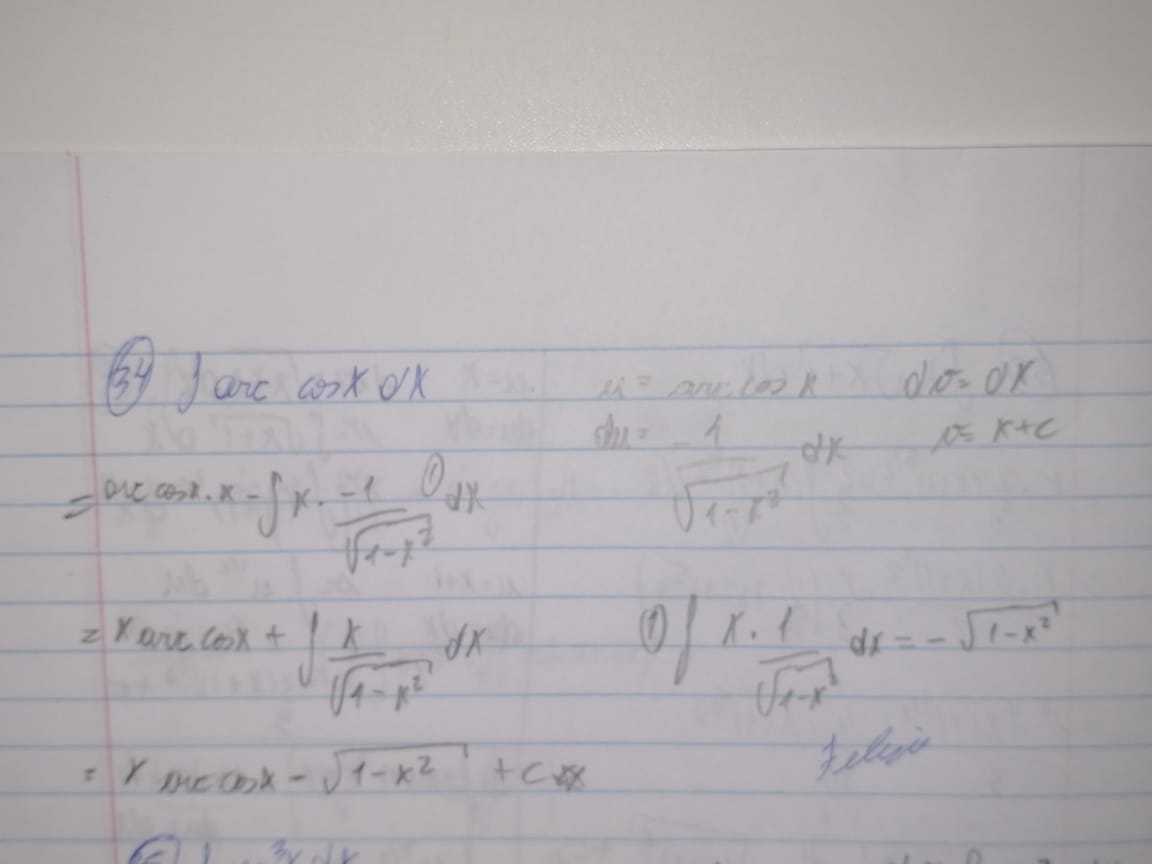 34 ∫ arc cosx dx u = arc cos x dv = dx
du = -1/√(1-x²) dx v = x+c
= arc cosx·x - ∫ x · -1/√(1-x²) ① dx
= x arc cosx + ∫ x/√(1-x²) dx ① ∫ x · 1/√(1-x²) dx = - √(1-x²)
= x arc cosx - √(1-x²) + C